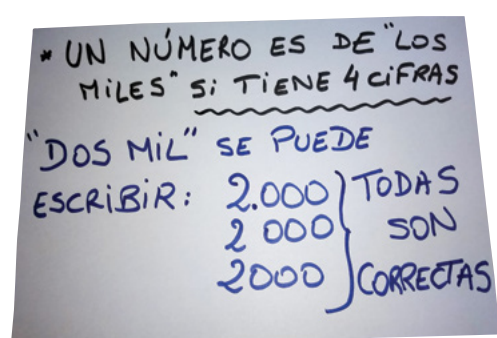 * UN NÚMERO ES DE "LOS
MILES" SI TIENE 4 CIFRAS
"DOS MIL" SE PUEDE
ESCRIBIR: 2.000 TODAS
2 000 SON
2000 CORRECTAS